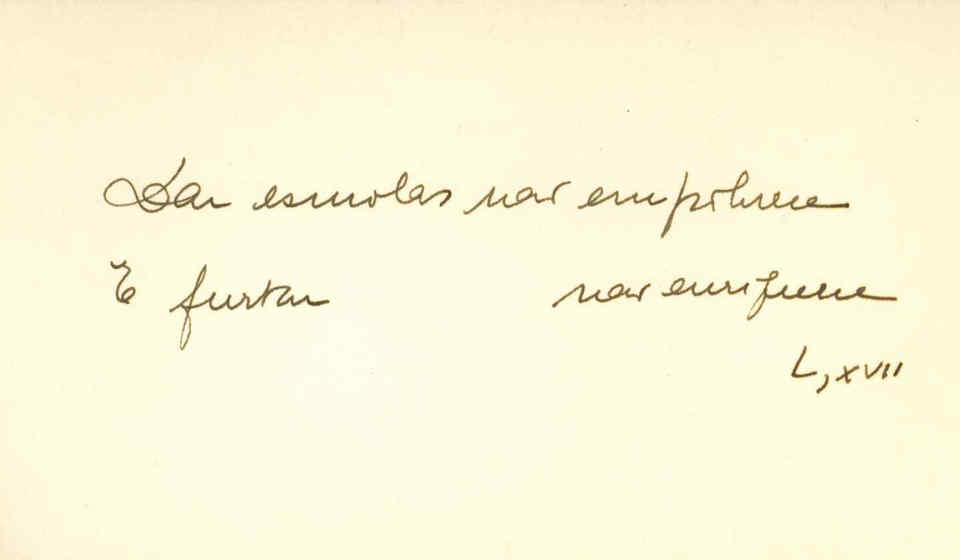 Dar esmolas nao empobrece
E furtar nao enriquece
L, XVII